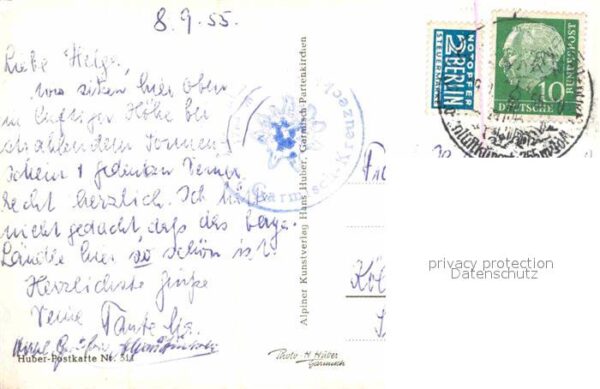 8.9.55.
Liebe Helga,
wir sitzen hier oben
in luftiger Höhe bei
strahlendem Sonnen-
schein & gedenken Deiner
recht herzlich. Ich hätte
nicht gedacht, dass das
Ländle hier so schön ist.
Herzlichste Grüße
Deine Tante
Huber-Postkarte Nr. 511
Alpiner Kunstverlag Hans Huber, Garmisch-Partenkirchen
Garmisch-Kreuzeck
NOTOPFER
2 BERLIN
STEUERMARKE
DEUTSCHE
BUNDESPOST
10
Köl
privacy protection
Datenschutz
Photo H. Huber
Garmisch